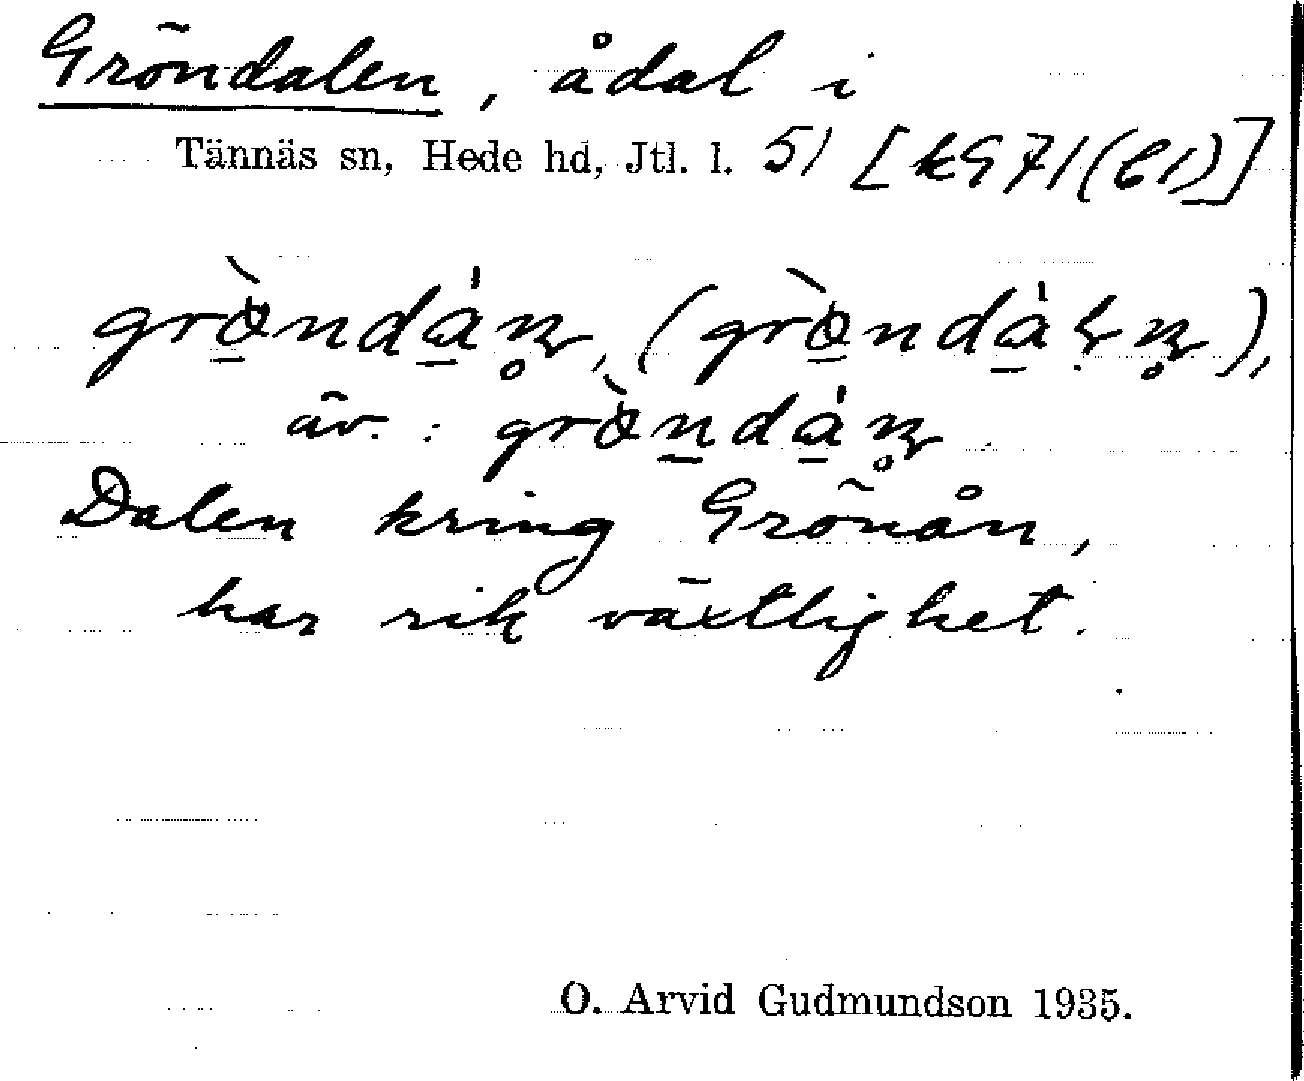 Gröndalen, ådal i
Tännäs sn, Hede hd, Jtl. l. 51 [k971(61)]
äv. :
Dalen kring Grönån,
har rik växtlighet.
O. Arvid Gudmundson 1935.